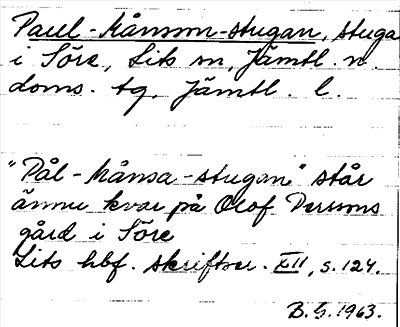 Paul-Månson-stugan, stuga
i Söre, Lits sn, Jämtl. n.
doms. tg, Jämtl. l.
"Pål-Månsa-stugan" står
ännu kvar på Olof Perssons
gård i Söre
Lits hbf. skrifter. XII, s. 124.
B. G. 1963.